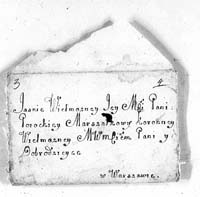 3 4
Jasnie Wielmozney Jey Mści Pani
Potockiey Marszałkowy Koronney
Wielmozney Pani y
Dobrodzieyce
w Warszawie.